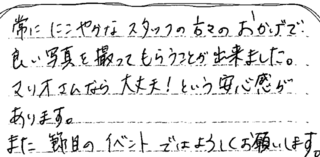 常に にこやかな スタッフの方々の おかげで
良い写真を撮ってもらうことが出来ました。
マリオさんなら 大丈夫！という 安心感が
あります。
また 節目の イベント ではよろしくお願いします。